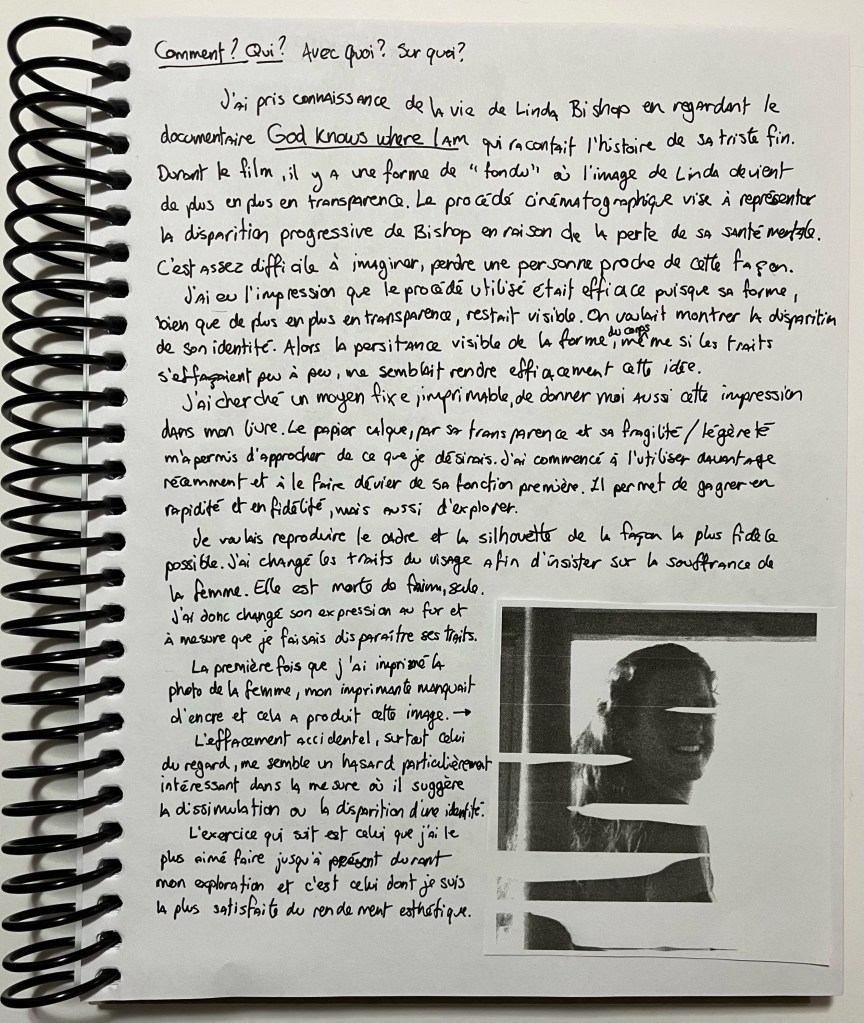 Comment? Qui? Avec quoi? Sur quoi?
J'ai pris connaissance de la vie de Linda Bishop en regardant le
documentaire God Knows where I Am qui racontait l'histoire de sa triste fin.
Durant le film, il y a une forme de "fondu" où l'image de Linda devient
de plus en plus en transparence. Le procédé cinématographique vise à représenter
la disparition progressive de Bishop en raison de la perte de sa santé mentale.
C'est assez difficile à imaginer, perdre une personne proche de cette façon.
J'ai eu l'impression que le procédé utilisé était efficace puisque sa forme,
bien que de plus en plus en transparence, restait visible. On voulait montrer la disparition
de son identité. Alors la persitance visible de la forme du corps, même si les traits
s'effaçaient peu à peu, me semblait rendre efficacement cette idée.
J'ai cherché un moyen fixe, imprimable, de donner moi aussi cette impression
dans mon livre. Le papier calque, par sa transparence et sa fragilité/légèreté
m'a permis d'approcher de ce que je désirais. J'ai commencé à l'utiliser davantage
récemment et à le faire dévier de sa fonction première. Il permet de gagner en
rapidité et en fidélité, mais aussi d'explorer.
Je voulais reproduire le cadre et la silhouette de la façon la plus fidèle
possible. J'ai changé les traits du visage afin d'insister sur la souffrance de
la femme. Elle est morte de faim, seule.
J'ai donc changé son expression au fur et
à mesure que je faisais disparaître ses traits.
La première fois que j'ai imprimé la
photo de la femme, mon imprimante manquait
d'encre et cela a produit cette image. →
L'effacement accidentel, surtout celui
du regard, me semble un hasard particulièrement
intéressant dans la mesure où il suggère
la dissimulation ou la disparition d'une identité.
L'exercice qui suit est celui que j'ai le
plus aimé faire jusqu'à présent durant
mon exploration et c'est celui dont je suis
la plus satisfaite du rendement esthétique.